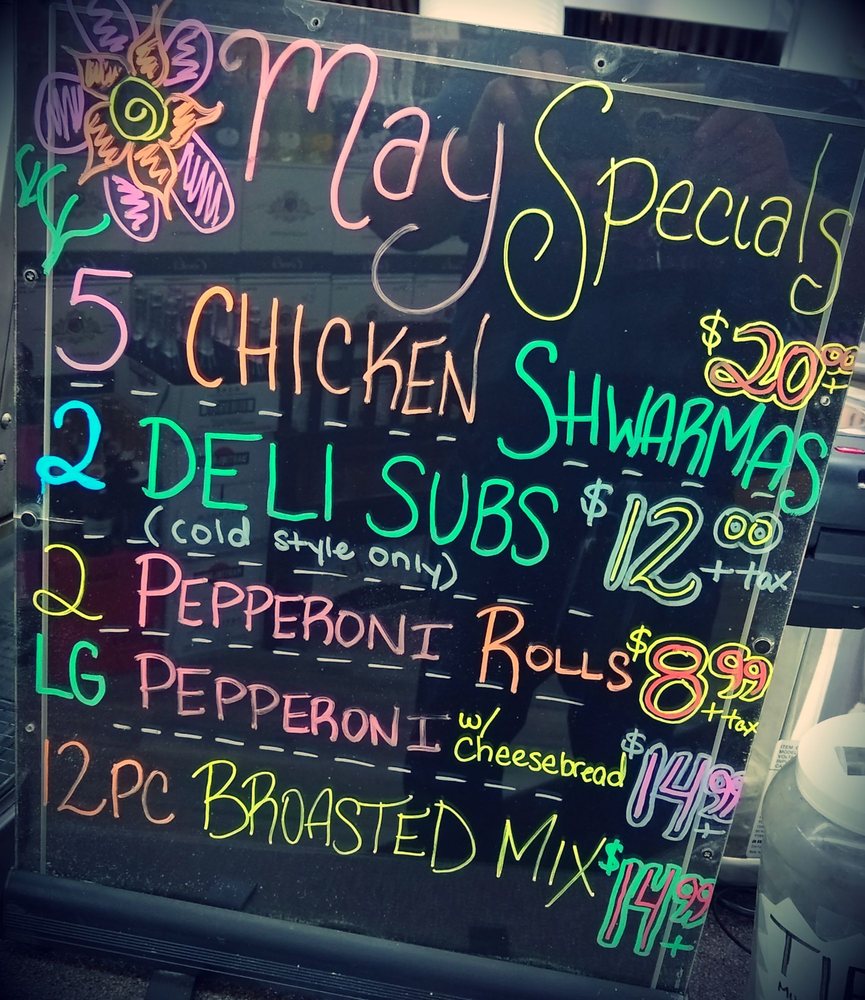 May Specials
5 CHICKEN SHWARMAS $20.00 +
2 DELI SUBS $12.00 + tax
(cold style only)
2 PEPPERONI ROLLS $8.99 + tax
LG PEPPERONI w/ cheesebread $14.99 +
12PC BROASTED MIX $14.99 +